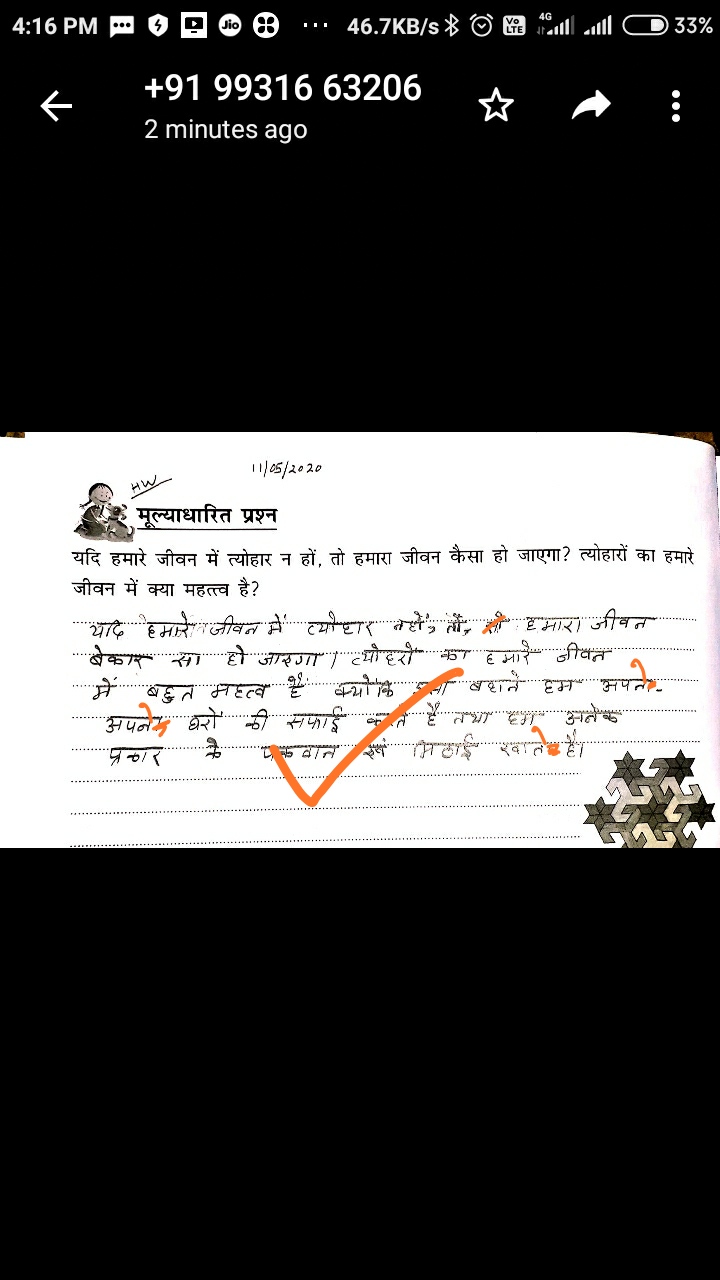 4:16 PM Jio ... 46.7KB/s Vo LTE 4G 33%
+91 99316 63206
2 minutes ago
11/05/2020
HW
मूल्याधारित प्रश्न
यदि हमारे जीवन में त्योहार न हों, तो हमारा जीवन कैसा हो जाएगा? त्योहारों का हमारे
जीवन में क्या महत्त्व है?
यदि हमारे जीवन में त्योहार नहों, तों, हमारा जीवन
बेकार सा हो जाइगा। त्योहरों का हमारे जीवन
में बहुत महत्व है क्योंकि इसी बहाने हम अपने-
अपने घरों की सफाई करते है तथा हम अनेक
प्रकार के पकवान एवं मिठाई खाते है।